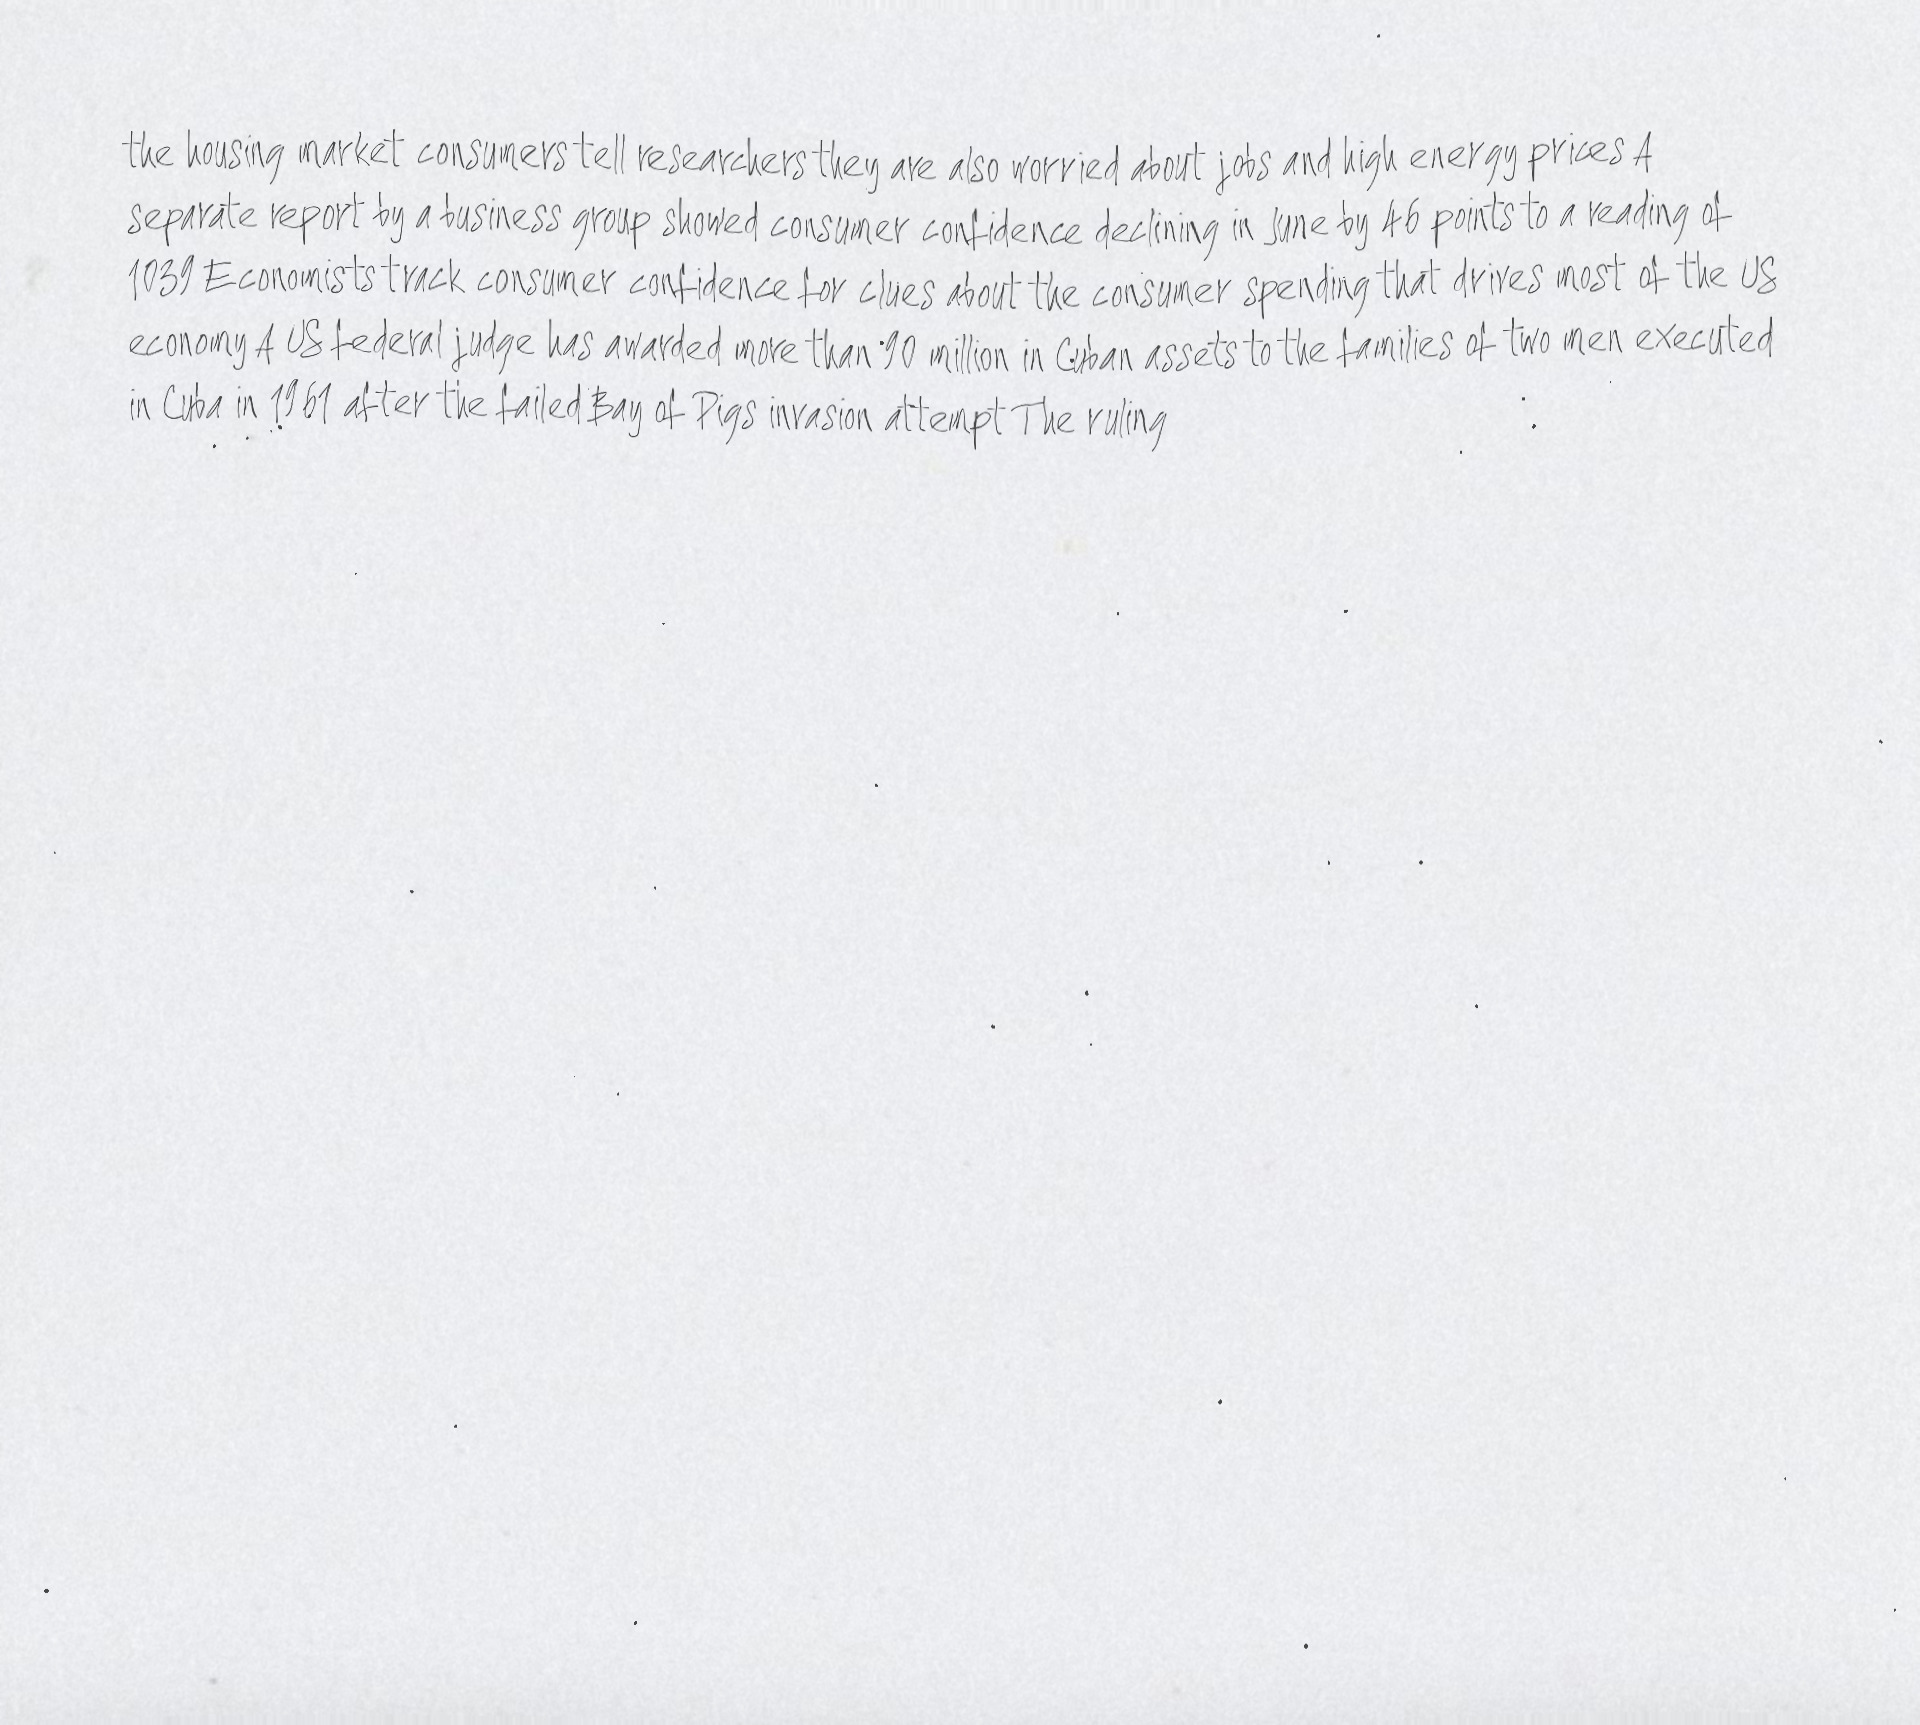 the housing market consumers tell researchers they are also worried about jobs and high energy prices A
separate report by a business group showed consumer confidence declining in June by 46 points to a reading of
1039 Economists track consumer confidence for clues about the consumer spending that drives most of the US
economy A US federal judge has awarded more than 90 million in Cuban assets to the families of two men executed
in Cuba in 1961 after the failed Bay of Pigs invasion attempt The ruling